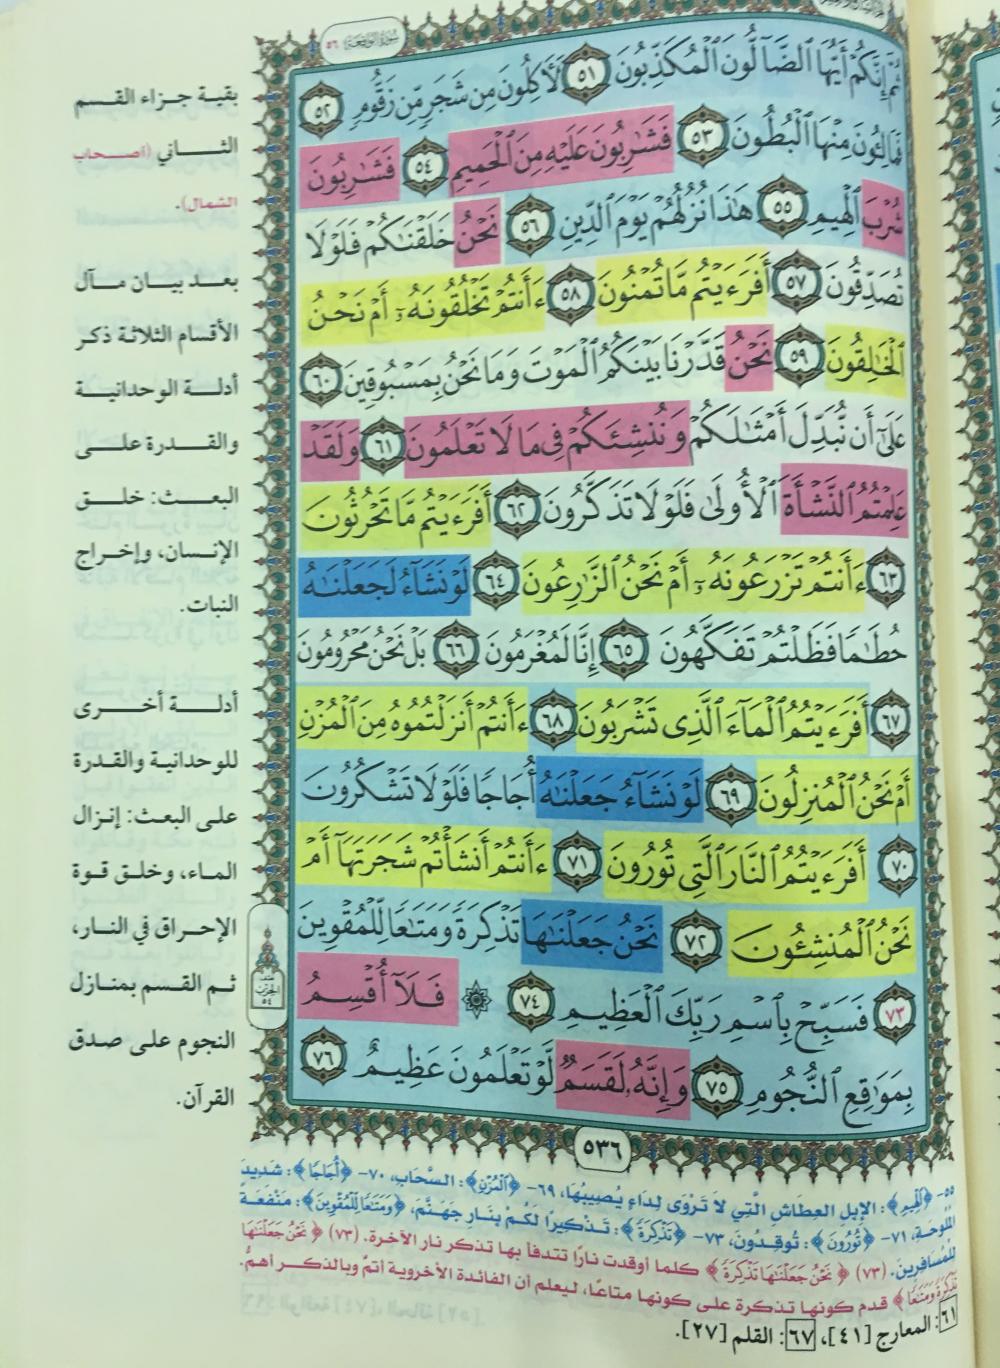 سُورَةُ الوَاقِعَةِ ٥٦
ثُمَّ إِنَّكُمْ أَيُّهَا ٱلضَّآلُّونَ ٱلْمُكَذِّبُونَ ٥١ لَأَكِلُونَ مِن شَجَرٍ مِّن زَقُّومٍ ٥٢
فَمَالِـُٔونَ مِنْهَا ٱلْبُطُونَ ٥٣ فَشَٰرِبُونَ عَلَيْهِ مِنَ ٱلْحَمِيمِ ٥٤ فَشَٰرِبُونَ
شُرْبَ ٱلْهِيمِ ٥٥ هَٰذَا نُزُلُهُمْ يَوْمَ ٱلدِّينِ ٥٦ نَحْنُ خَلَقْنَٰكُمْ فَلَوْلَا
تُصَدِّقُونَ ٥٧ أَفَرَءَيْتُم مَّا تُمْنُونَ ٥٨ ءَأَنتُمْ تَخْلُقُونَهُۥٓ أَمْ نَحْنُ
ٱلْخَٰلِقُونَ ٥٩ نَحْنُ قَدَّرْنَا بَيْنَكُمُ ٱلْمَوْتَ وَمَا نَحْنُ بِمَسْبُوقِينَ ٦٠
عَلَىٰٓ أَن نُّبَدِّلَ أَمْثَٰلَكُمْ وَنُنشِئَكُمْ فِى مَا لَا تَعْلَمُونَ ٦١ وَلَقَدْ
عَلِمْتُمُ ٱلنَّشْأَةَ ٱلْأُولَىٰ فَلَوْلَا تَذَكَّرُونَ ٦٢ أَفَرَءَيْتُم مَّا تَحْرُثُونَ
٦٣ ءَأَنتُمْ تَزْرَعُونَهُۥٓ أَمْ نَحْنُ ٱلزَّٰرِعُونَ ٦٤ لَوْ نَشَآءُ لَجَعَلْنَٰهُ
حُطَٰمًا فَظَلْتُمْ تَفَكَّهُونَ ٦٥ إِنَّا لَمُغْرَمُونَ ٦٦ بَلْ نَحْنُ مَحْرُومُونَ
٦٧ أَفَرَءَيْتُمُ ٱلْمَآءَ ٱلَّذِى تَشْرَبُونَ ٦٨ ءَأَنتُمْ أَنزَلْتُمُوهُ مِنَ ٱلْمُزْنِ
أَمْ نَحْنُ ٱلْمُنزِلُونَ ٦٩ لَوْ نَشَآءُ جَعَلْنَٰهُ أُجَاجًا فَلَوْلَا تَشْكُرُونَ
٧٠ أَفَرَءَيْتُمُ ٱلنَّارَ ٱلَّتِى تُورُونَ ٧١ ءَأَنتُمْ أَنشَأْتُمْ شَجَرَتَهَآ أَمْ
نَحْنُ ٱلْمُنشِـُٔونَ ٧٢ نَحْنُ جَعَلْنَٰهَا تَذْكِرَةً وَمَتَٰعًا لِّلْمُقْوِينَ
٧٣ فَسَبِّحْ بِٱسْمِ رَبِّكَ ٱلْعَظِيمِ ٧٤ ۞ فَلَآ أُقْسِمُ
بِمَوَٰقِعِ ٱلنُّجُومِ ٧٥ وَإِنَّهُۥ لَقَسَمٌ لَّوْ تَعْلَمُونَ عَظِيمٌ ٧٦
٥٣٦
بقية جزاء القسم
الثاني (أصحاب
الشمال).
بعد بيان مآل
الأقسام الثلاثة ذكر
أدلة الوحدانية
والقدرة على
البعث: خلق
الإنسان، وإخراج
النبات.
أدلة أخرى
للوحدانية والقدرة
على البعث: إنزال
الماء، وخلق قوة
الإحراق في النار،
ثم القسم بمنازل
النجوم على صدق
القرآن.
الحزب
٥٤
٥٥- ﴿الْهِيمِ﴾: الإبل العِطَاشِ الَّتِي لا تَرْوَى لِدَاءٍ يُصِيبُهَا، ٦٩- ﴿الْمُزْنِ﴾: السَّحَابِ، ٧٠- ﴿أُجَاجًا﴾: شَدِيدَ
المُلُوحَةِ، ٧١- ﴿تُورُونَ﴾: تُوقِدُونَ، ٧٣- ﴿تَذْكِرَةً﴾: تَذْكِيرًا لَكُمْ بِنَارِ جَهَنَّمَ، ﴿وَمَتَاعًا لِلْمُقْوِينَ﴾: مَنْفَعَةً
للمُسَافِرِينَ. (٧٣) ﴿نَحْنُ جَعَلْنَاهَا تَذْكِرَةً﴾ كلما أوقدت نارًا تتدفأ بها تذكر نار الآخرة. (٧٣) ﴿نَحْنُ جَعَلْنَاهَا
تَذْكِرَةً وَمَتَاعًا﴾ قدم كونها تذكرة على كونها متاعًا، ليعلم أن الفائدة الأخروية أتمّ وبالذكر أهمّ.
٦١: المعارج [٤١]، ٦٧: القلم [٢٧].